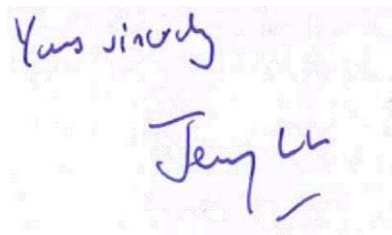 Yours sincerely
Jenny